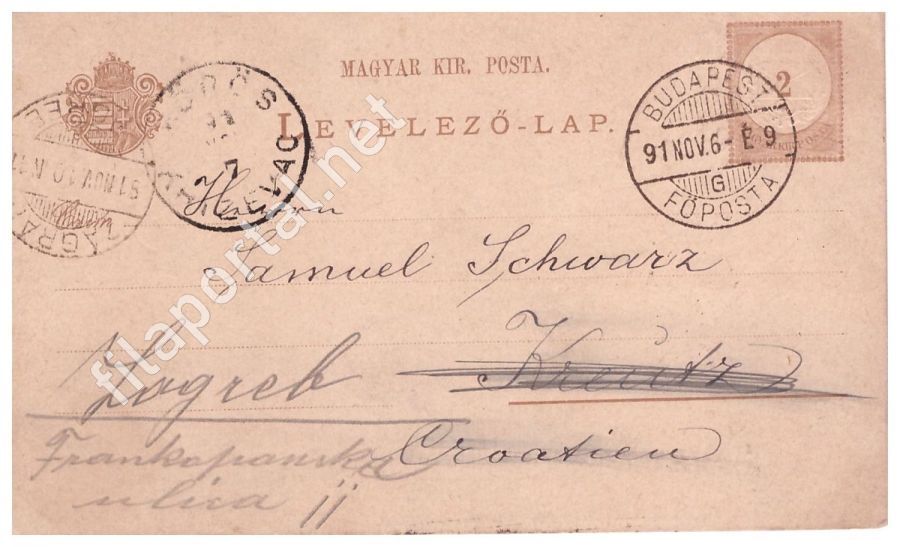 MAGYAR KIR. POSTA.
LEVELEZŐ-LAP.
2
BUDAPEST
91 NOV. 6 - E 9
G
FŐPOSTA
KÖRÖS
7
91 NOV 10
ZAGRA
Herrn
Samuel Schwarz
Kreutz
Zagreb
Croatien
Frankopanska
ulica 11
filaportal.net